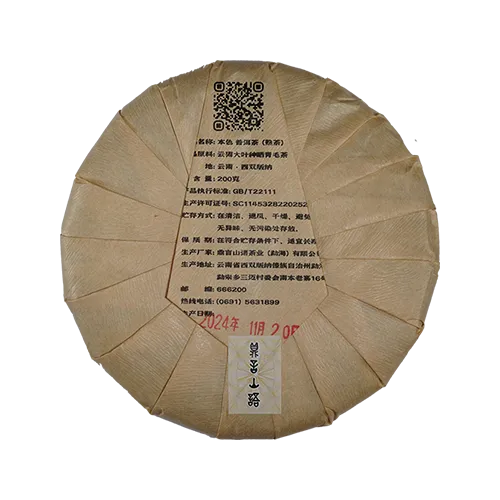 名称: 本色 普洱茶 (熟茶)
品原料: 云南大叶种晒青毛茶
地: 云南·西双版纳
含 量: 200克
产品执行标准: GB/T22111
生产许可证号: SC1145328220252
贮存方式: 在清洁、通风、干燥、避免
无异味、无污染处存放。
保 质 期: 在符合贮存条件下, 适宜长
生产厂家: 鼎言山语茶业 (勐海) 有限公
生产地址: 云南省西双版纳傣族自治州勐
勐宋乡三迈村委会南本老寨16
邮 编: 666200
热线电话: (0691) 5631899
生产日期:
2024年 11月 20